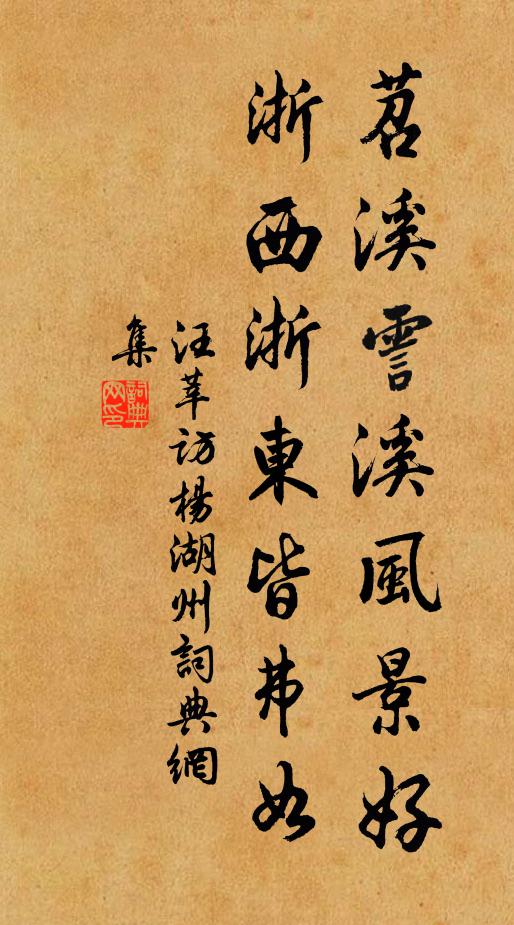 苕溪霅溪風景好
浙西浙東皆弗如
汪莘訪楊湖州詞典網
集
詞典网印